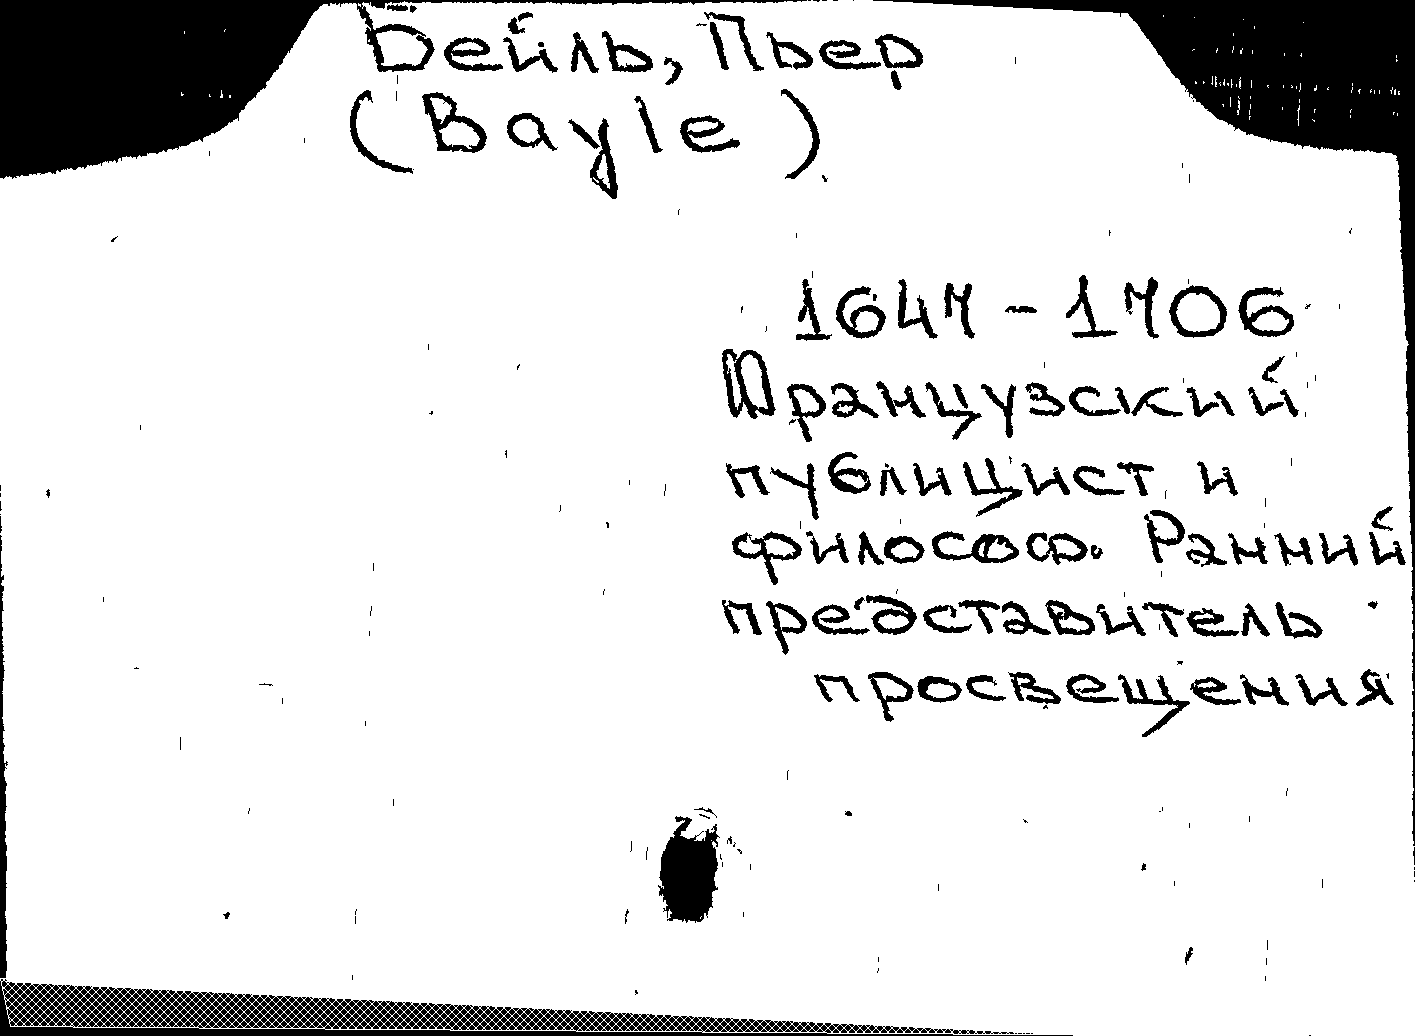 Бейль, Пьер
(Bayle)
1647 - 1706
Французский
публицист и
философ. Ранний
представитель
просвещения